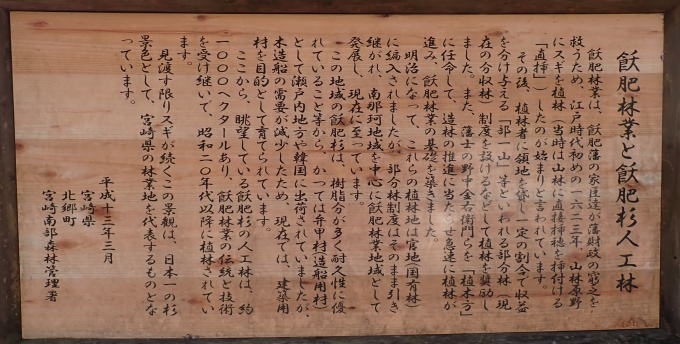 飫肥林業と飫肥杉人工林
飫肥林業は、飫肥藩の家臣達が藩財政の窮乏を
救うため、江戸時代初めの一六二三年、山林原野
にスギを植林(当時は山林に直接挿穂を挿付ける
「直挿」)したのが始まりと言われています。
その後、植林者に領地を貸し一定の割合で収益
を分け与える「部一山」等といわれる部分林(現
在の分収林)制度を設けるなどとして植林を奨励し
ました。また、藩士の野中金右衛門らを「植木方」
に任命して、造林の推進に当たらせ急速に植林が
進み、飫肥林業の基礎を築きました。
明治になって、これらの植林地は官地(国有林)
に編入されましたが、部分林制度はそのまま引き
継がれ、南那珂地域を中心に飫肥林業地域として
発展し、現在に至っています。
この地域の飫肥杉は、樹脂分が多く耐久性に優
れていること等から、かつては弁甲材(造船用材)
として瀬戸内地方や韓国に出荷されていましたが、
木造船の需要が減少したため、現在では、建築用
材を目的として育てられています。
ここから、眺望している飫肥杉の人工林は、約
一〇〇〇ヘクタールあり、飫肥林業の伝統と技術
を受け継いで、昭和二〇年代以降に植林されてい
ます。
見渡す限りスギが続くこの景観は、日本一の杉
景色として、宮崎県の林業地を代表するものとな
っています。
平成十三年三月
宮崎県
北郷町
宮崎南部森林管理署